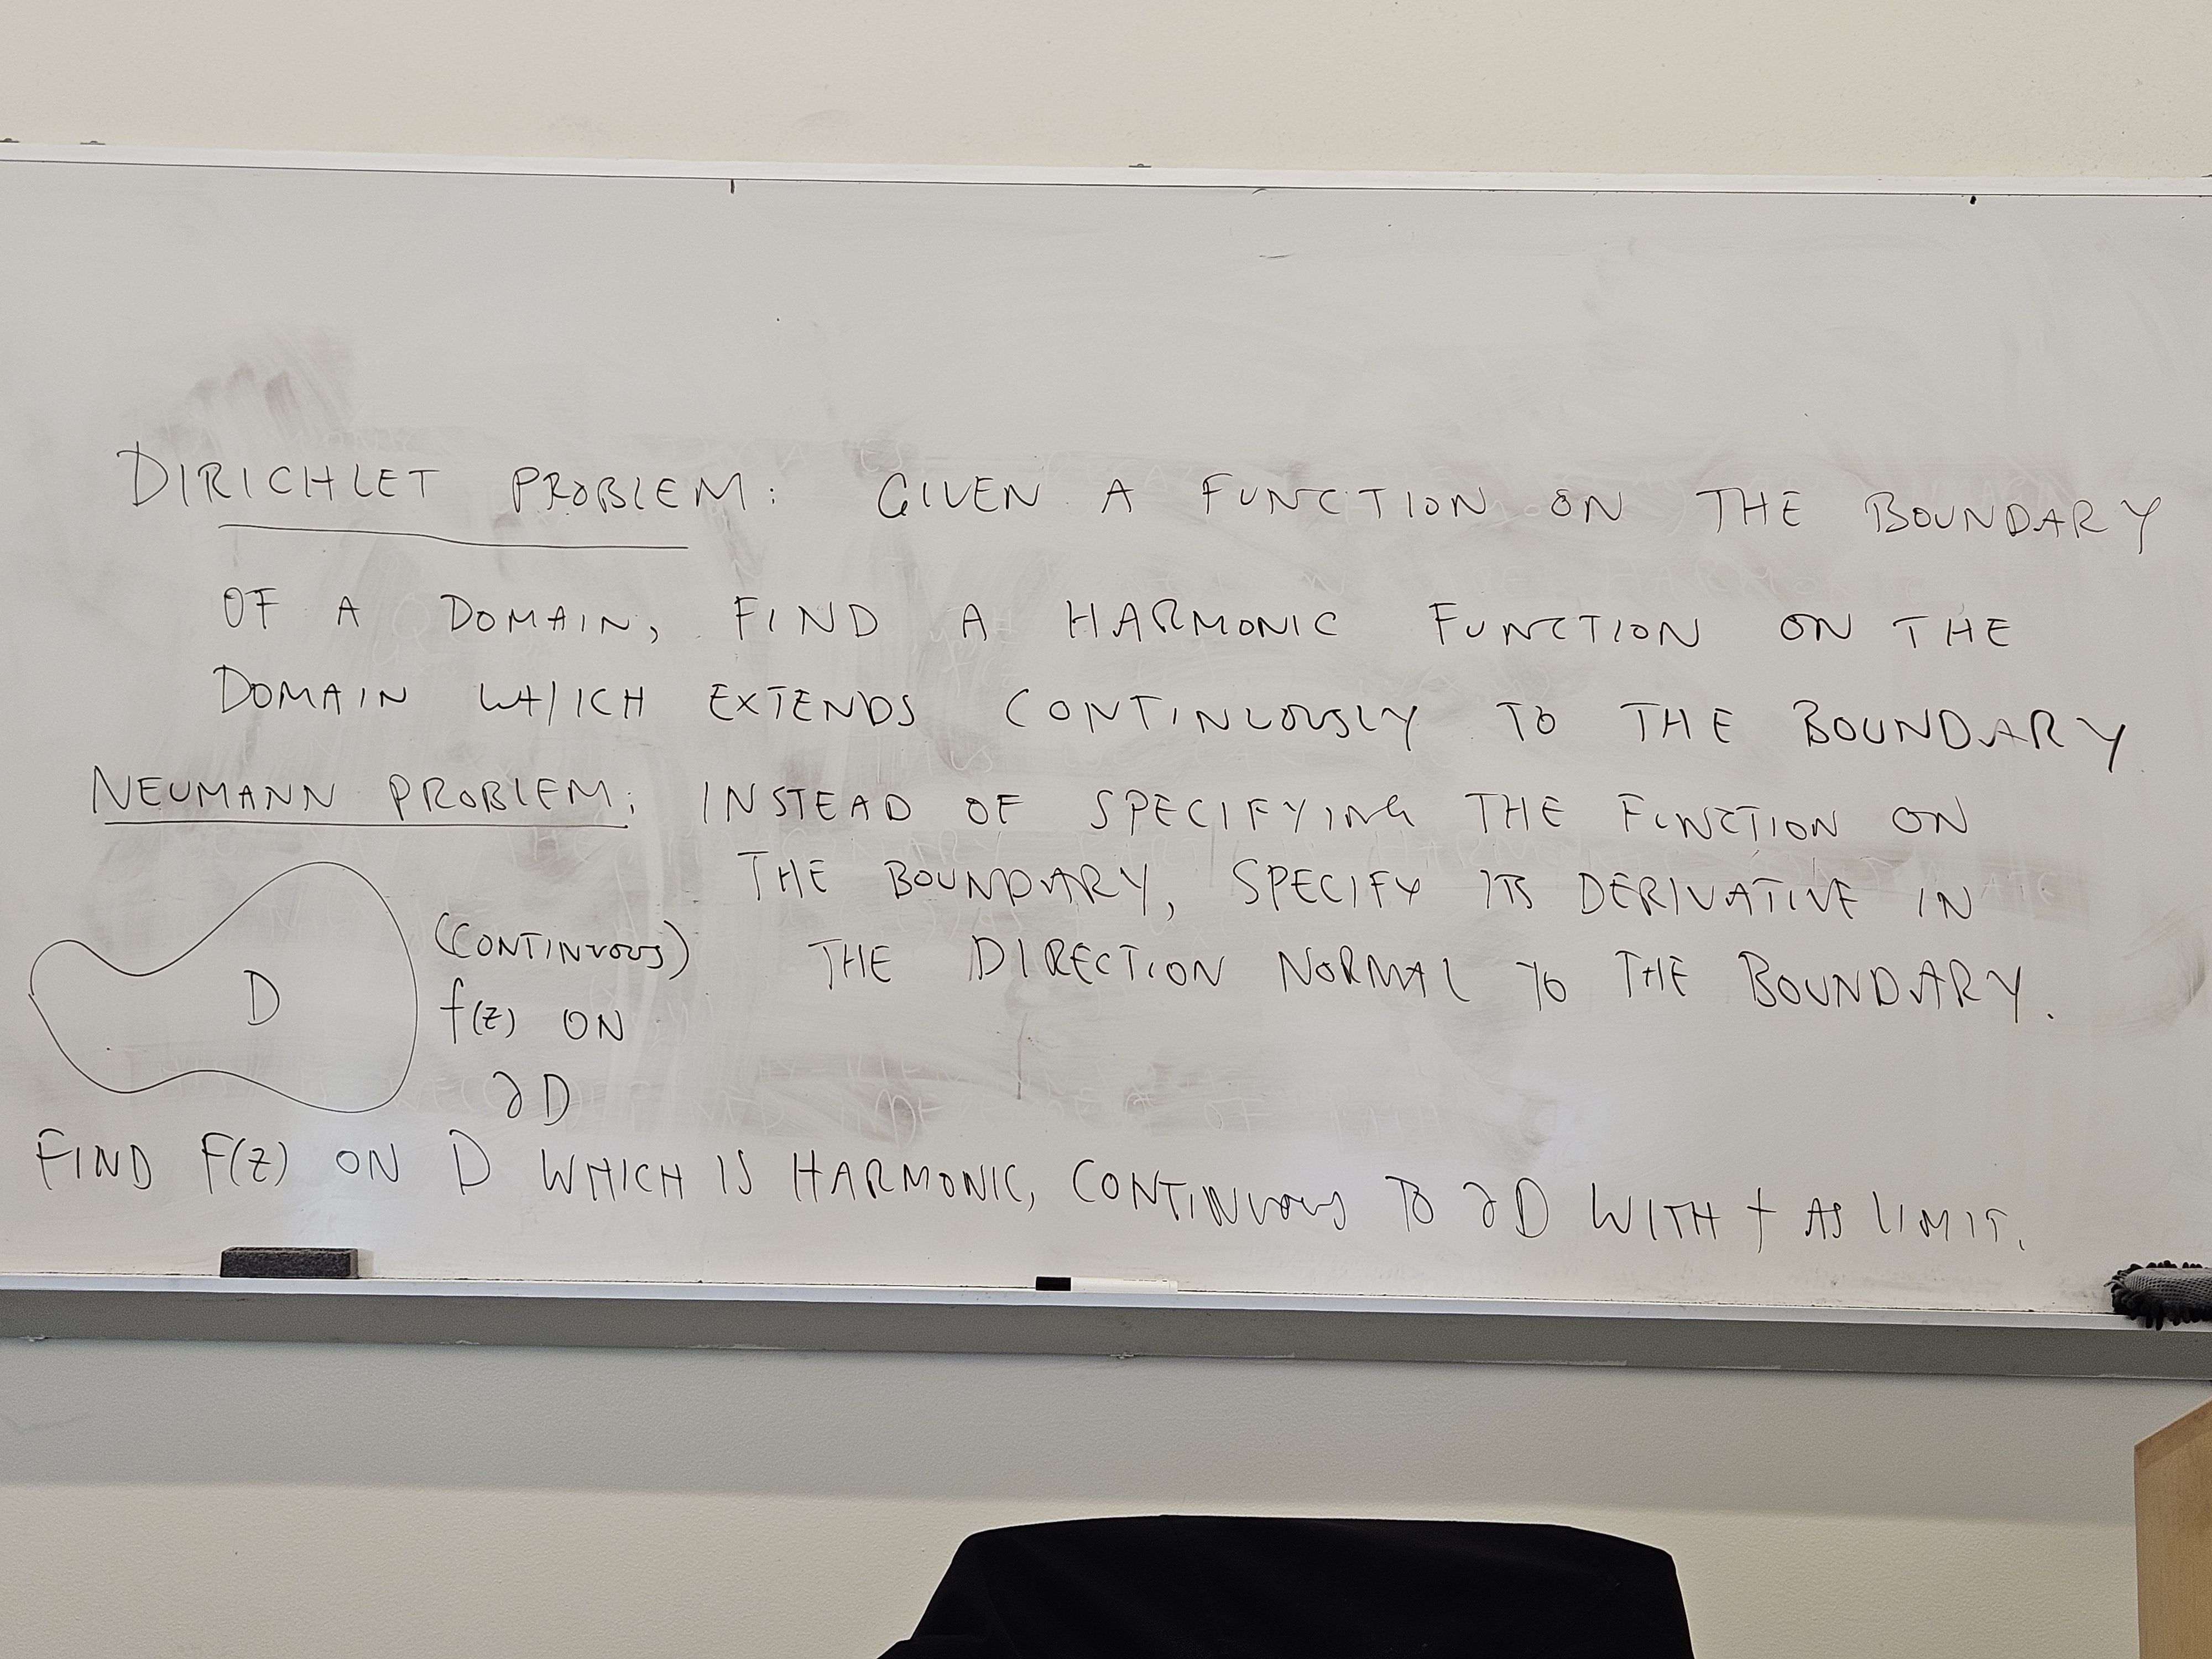 DIRICHLET PROBLEM: GIVEN A FUNCTION ON THE BOUNDARY
OF A DOMAIN, FIND A HARMONIC FUNCTION ON THE
DOMAIN WHICH EXTENDS CONTINUOUSLY TO THE BOUNDARY
NEUMANN PROBLEM: INSTEAD OF SPECIFYING THE FUNCTION ON
THE BOUNDARY, SPECIFY ITS DERIVATIVE IN
THE DIRECTION NORMAL TO THE BOUNDARY.
D
(CONTINUOUS)
f(z) ON
∂D
FIND F(z) ON D WHICH IS HARMONIC, CONTINUOUS TO ∂D WITH f AS LIMIT.